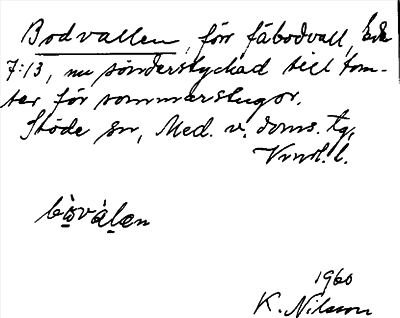 Bodvallen, förr fäbodvall, Ede
7:13, nu sönderstyckad till tom-
ter för sommarstugor.
Stöde sn, Med. v. doms. tg,
Vnrl. l.
bo̱våḻen
1960
K. Nilsson